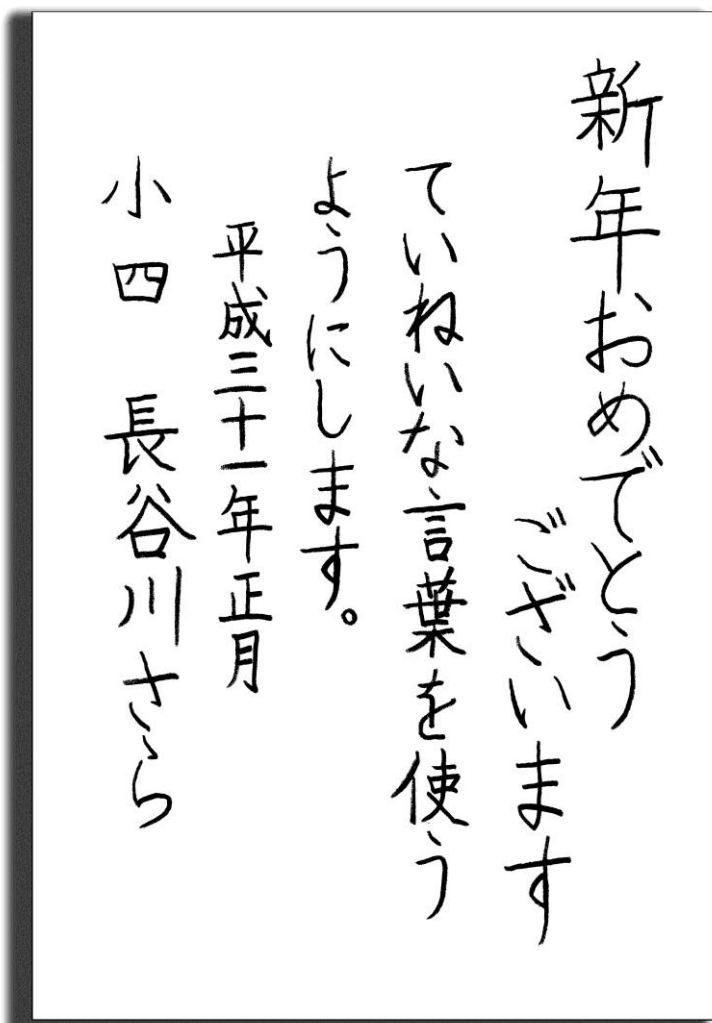 新年おめでとう
ございます
ていねいな言葉を使う
ようにします。
平成三十一年正月
小四 長谷川さら